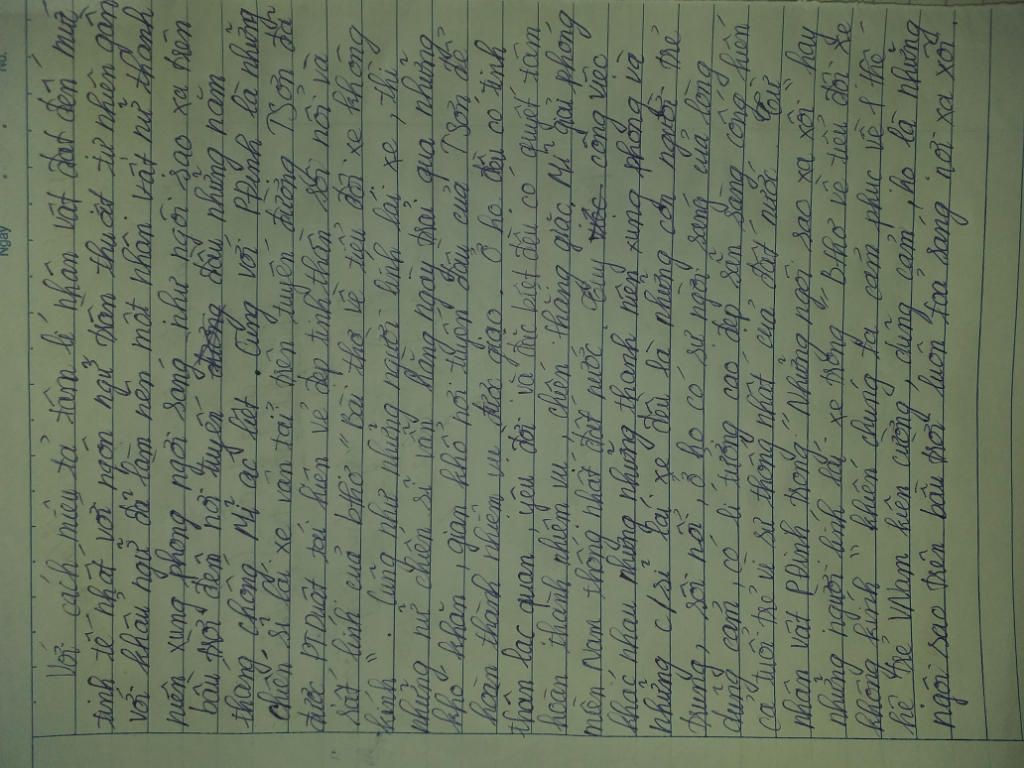 No.
Ngày
Với cách miêu tả tâm lí nhân vật đạt đến mức
tinh tế nhất với ngôn ngữ trần thuật tự nhiên gần
với khẩu ngữ để làm nên một nhân vật nữ thanh
niên xung phong ngời sáng như ngôi sao xa trên
bầu trời đến nơi tuyến đường đầu những năm
tháng chống Mĩ ác liệt. Cùng với PĐịnh là những
chiến sĩ lái xe vận tải trên tuyến đường TSơn đã
được PTDuật tái hiện vẻ đẹp tinh thần sôi nổi và
sát lính của bthơ " Bài thơ về tiểu đội xe không
kính ". Cũng như những người lính lái xe, thì
những nữ chiến sĩ vẫn hằng ngày trải qua những
khó khăn, gian khổ nơi tuyến đầu của TSơn để
hoàn thành nhiệm vụ được giao. Ở họ đều có tinh
thần lạc quan yêu đời và đặc biệt đều có quyết tâm
hoàn thành nhiệm vụ, chiến thắng giặc Mĩ giải phóng
miền Nam thống nhất đất nước. Tuy công việc
khác nhau nhưng những thanh niên xung phong và
những c/sĩ lái xe đều là những con người trẻ
trung, sôi nổi, ở họ có sự ngời sáng của lòng
dũng cảm, có lí tưởng cao đẹp sẵn sàng cống hiến
cả tuổi trẻ vì sự thống nhất của đất nước. Dù
nhân vật PĐịnh trong " Những ngôi sao xa xôi " hay
những người lính lái xe trong " Bthơ về tiểu đội xe
không kính " khiến chúng ta cảm phục về 1 thế
hệ trẻ VNam kiên cường, dũng cảm, họ là những
ngôi sao trên bầu trời luôn tỏa sáng nơi xa xôi.